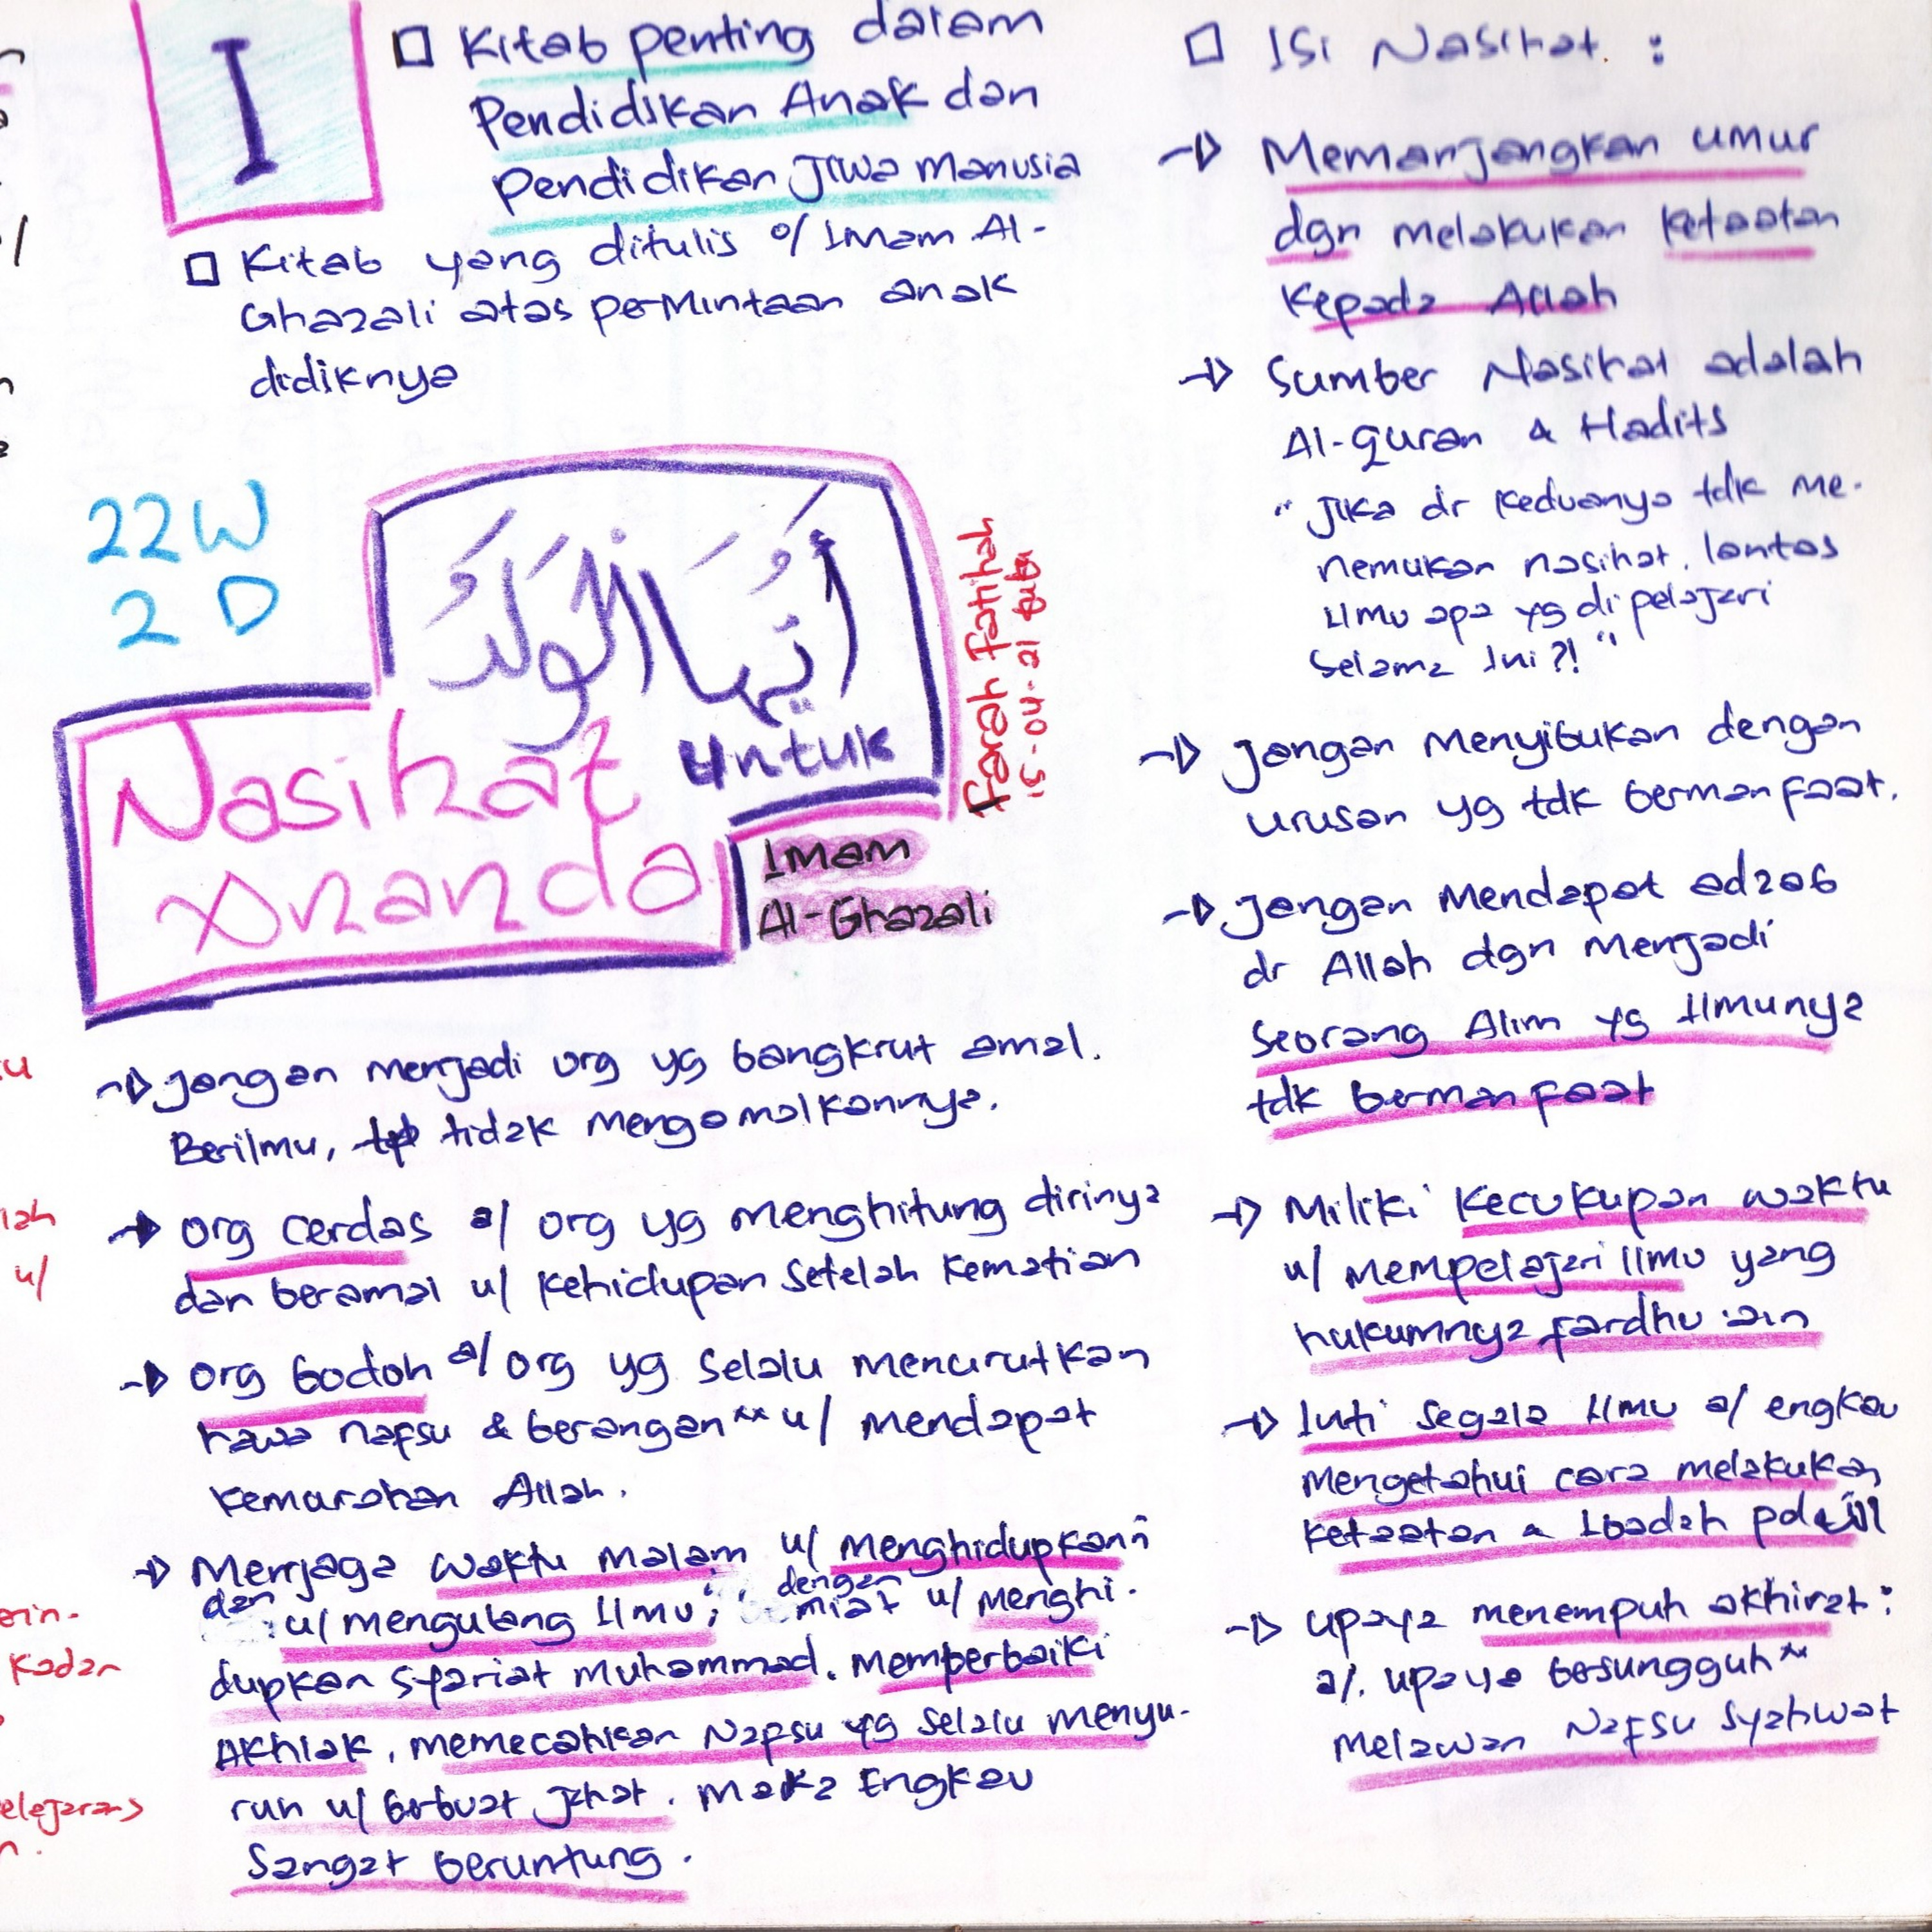 I
□ Kitab penting dalam
Pendidikan Anak dan
Pendidikan Jiwa Manusia
□ Kitab yang ditulis o/ Imam Al-
Ghazali atas permintaan anak
didiknya
22W
2 D
أَيُّهَا الْوَلَدُ
Nasihat untuk
Ananda
Imam
Al-Ghazali
Farah Fatihah
15-04-21
→ Jangan menjadi org yg bangkrut amal.
Berilmu, tidak mengamalkannya.
→ Org cerdas a/ org yg menghitung dirinya
dan beramal u/ kehidupan setelah kematian
→ Org bodoh a/ org yg selalu menurutkan
hawa nafsu & berangan" u/ mendapat
kemarahan Allah.
→ Menjaga waktu malam u/ menghidupkann
dan u/ mengulang ilmu; dengan niat u/ menghi-
dupkan syariat Muhammad. Memperbaiki
Akhlak, memecahkan Nafsu yg selalu menyu-
ruh u/ berbuat jahat. Maka Engkau
sangat beruntung.
□ Isi Nasihat :
→ Memanjangkan umur
dgn melakukan ketaatan
kepada Allah
→ Sumber Nasihat adalah
Al-Quran & Hadits
"Jika dr keduanya tdk me-
nemukan nasihat, lantas
ilmu apa yg dipelajari
selama ini?!"
→ Jangan menyibukan dengan
urusan yg tdk bermanfaat.
→ Jangan mendapat adzab
dr Allah dgn menjadi
seorang Alim yg ilmunya
tdk bermanfaat
→ Miliki kecukupan waktu
u/ mempelajari ilmu yang
hukumnya fardhu 'ain
→ Inti segala ilmu a/ engkau
mengetahui cara melakukan
ketaatan & Ibadah pd الله
→ Upaya menempuh akhirat:
a/. upaya besungguh"
melawan Nafsu Syahwat